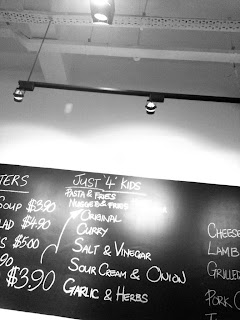 TERS
SOUP $3.90
LAD $4.90
S $5.00
.90
$3.90
JUST '4' KIDS
PASTA & FRIES
NUGGETS & FRIES
ORIGINAL
CURRY
SALT & VINEGAR
SOUR CREAM & ONION
GARLIC & HERBS
CHEESE
LAMB
GRILLED
PORK